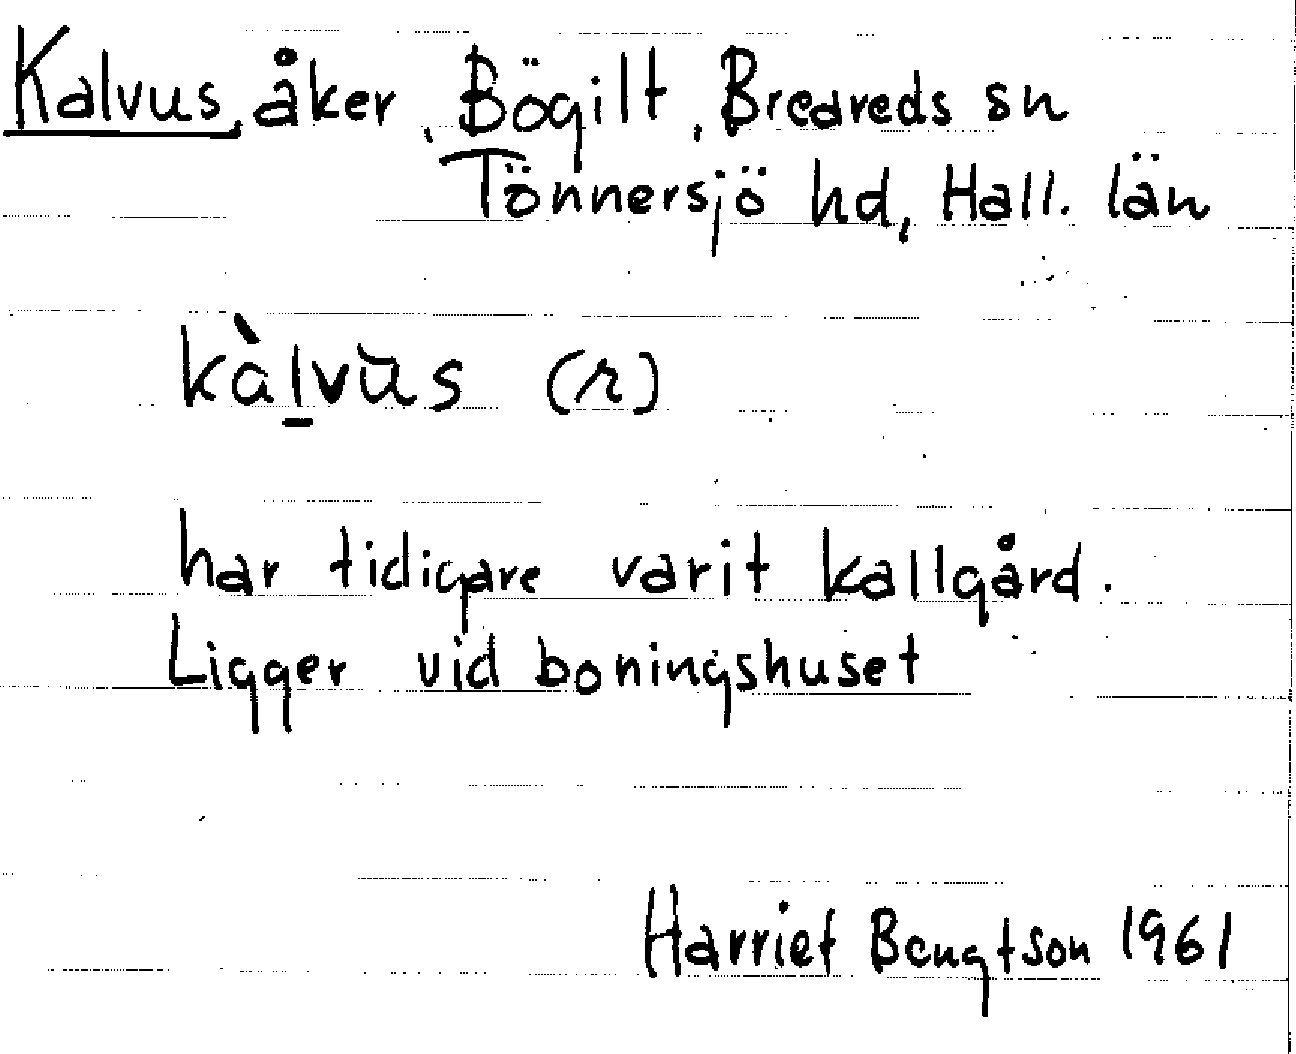 Kalvus, åker, Bögilt, Breareds sn
Tönnersjö hd, Hall. län
kàl̲vŭs (r)
har tidigare varit kallgård.
Ligger vid boningshuset
Harriet Bengtson 1961